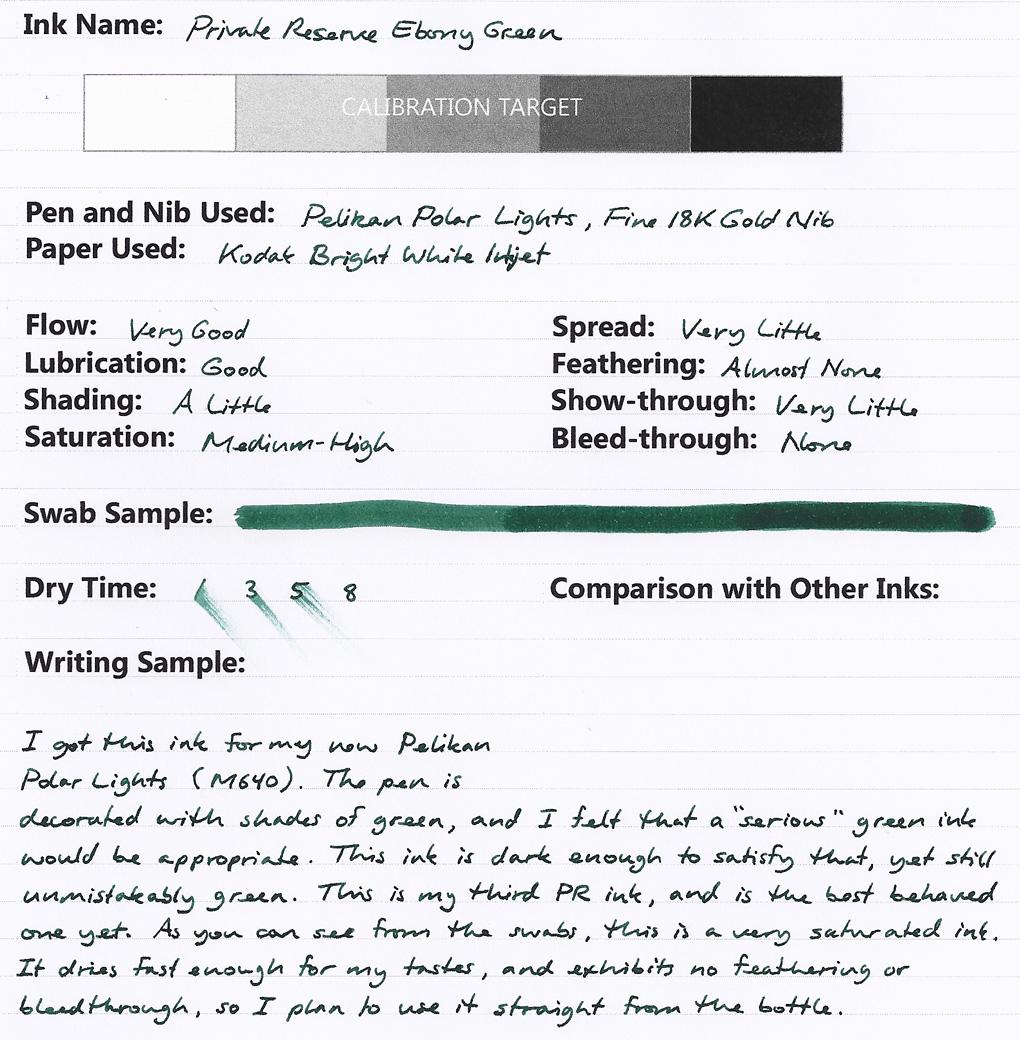 Ink Name: Private Reserve Ebony Green
CALIBRATION TARGET
Pen and Nib Used: Pelikan Polar Lights, Fine 18K Gold Nib
Paper Used: Kodak Bright White Inkjet
Flow: Very Good
Spread: Very Little
Lubrication: Good
Feathering: Almost None
Shading: A Little
Show-through: Very Little
Saturation: Medium-High
Bleed-through: None
Swab Sample:
Dry Time: 1 3 5 8
Comparison with Other Inks:
Writing Sample:
I got this ink for my new Pelikan
Polar Lights (M640). The pen is
decorated with shades of green, and I felt that a "serious" green ink
would be appropriate. This ink is dark enough to satisfy that, yet still
unmistakeably green. This is my third PR ink, and is the best behaved
one yet. As you can see from the swabs, this is a very saturated ink.
It dries fast enough for my tastes, and exhibits no feathering or
bleedthrough, so I plan to use it straight from the bottle.